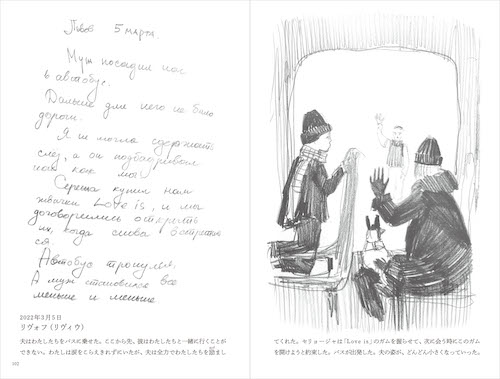 Львов 5 марта.
Муж посадил нас
в автобус.
Дальше для него не было
дороги.
Я не могла сдержать
слёз, а он подбадривал
нас как мог
Сережа купил нам
жвачки Love is, и мы
договорились открыть
их, когда снова встретим
ся.
Автобус тронулся.
А муж становился все
меньше и меньше
2022年3月5日
リヴォフ（リヴィウ）
夫はわたしたちをバスに乗せた。ここから先、彼はわたしたちと一緒に行くことが
できない。わたしは涙をこらえきれずにいたが、夫は全力でわたしたちを励まし
てくれた。セリョージャは「Love is」のガムを握らせて、次に会う時にこのガム
を開けようと約束した。バスが出発した。夫の姿が、どんどん小さくなっていった。